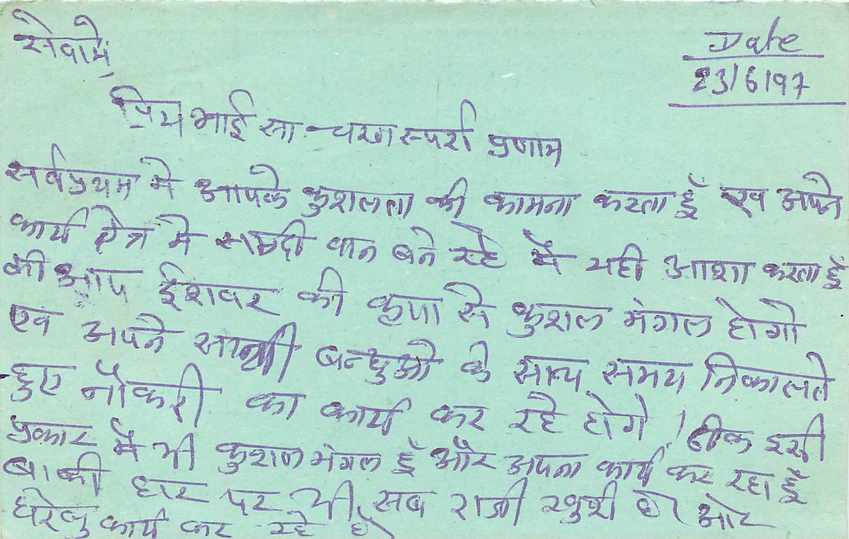 सेवामे,
Date
23/6/97
प्रिय भाई सा चरण स्पर्श प्रणाम
सर्वप्रथम मे आपके कुशलता की कामना करता हूँ एव अपने
कार्य क्षेत्र मे समृद्दी वान बने रहे मैं यही आशा करता हूँ
की आप ईशवर की कृपा से कुशल मंगल होगे
एव अपने साथी बन्धुओ के साथ समय निकालते
हुए नौकरी का कार्य कर रहे होगे । ठीक इसी
प्रकार मैं भी कुशल मंगल हूँ और अपना कार्य कर रहा हूँ
बाकी घर पर भी सब राजी खुशी है। ओर
घरेलु कार्य कर रहे है